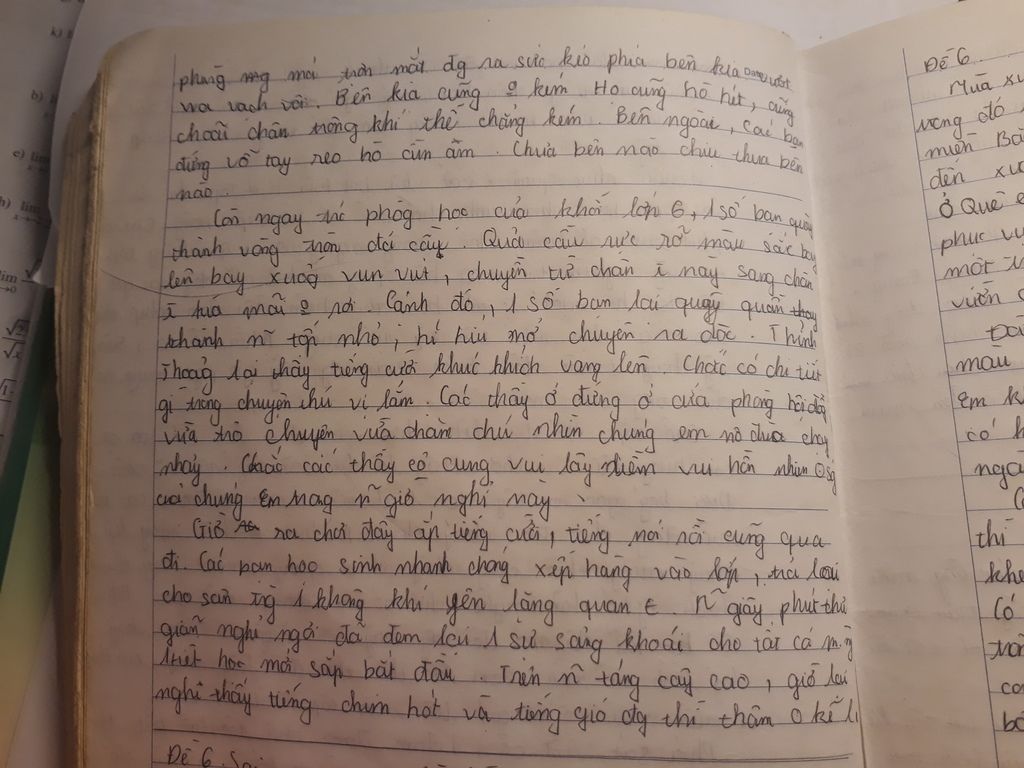 phùng mang má trợn mắt đg ra sức kéo phía bên kia vượt
wa vạch vôi. Bên kia cũng o kém. Họ cũng hò hét, cũng
choãi chân trông khí thế chẳng kém. Bên ngoài, các bạn
đứng vỗ tay reo hò ầm ầm. Chưa bên nào chịu thua bên
nào.
Còn ngay trc phòg học của khối lớp 6, 1 số bạn quây
thành vòng tròn đá cầu. Quả cầu rực rỡ màu sắc bay
lên bay xuốg vun vút, chuyền từ chân ng này sang chân
ng kia mãi o rơi. Cạnh đó, 1 số bạn lại quây quần thay
thành n~ tốp nhỏ, hí híu mở chuyện ra đọc. Thỉnh
Thoảg lại thấy tiếng cười khúc khích vang lên. Chắc có chi tiết
gì trong chuyện thú vị lắm. Các thầy cô đứng ở cửa phòng hội đồg
vừa trò chuyện vừa chăm chú nhìn chúng em nô đùa chạy
nhảy. Chắc các thầy cô cũng vui lây niềm vui hồn nhiên
của chúng em trong n~ giờ nghỉ này.
Giờ ra chơi đầy ắp tiếng cười, tiếng nói rồi cũng qua
đi. Các bạn học sinh nhanh chóng xếp hàng vào lớp, trả lại
cho sân trg 1 không khí yên lặng quen t. N~ giây phút thư
giãn nghỉ ngơi đã đem lại 1 sự sảng khoái cho tất cả m.ng
tiết học mới sắp bắt đầu. Trên n~ tầng cây cao, giờ lại
nghe thấy tiếng chim hót và tiếng gió đg thì thầm o kể
Đề 6.
Đề 6
Mùa xu
vọng đó
miền Bắ
đến xu
Ở Quê e
phục vụ
một
vườn
màu
Em k
có h
ngà
thì
khe
Có
trò
co
bố